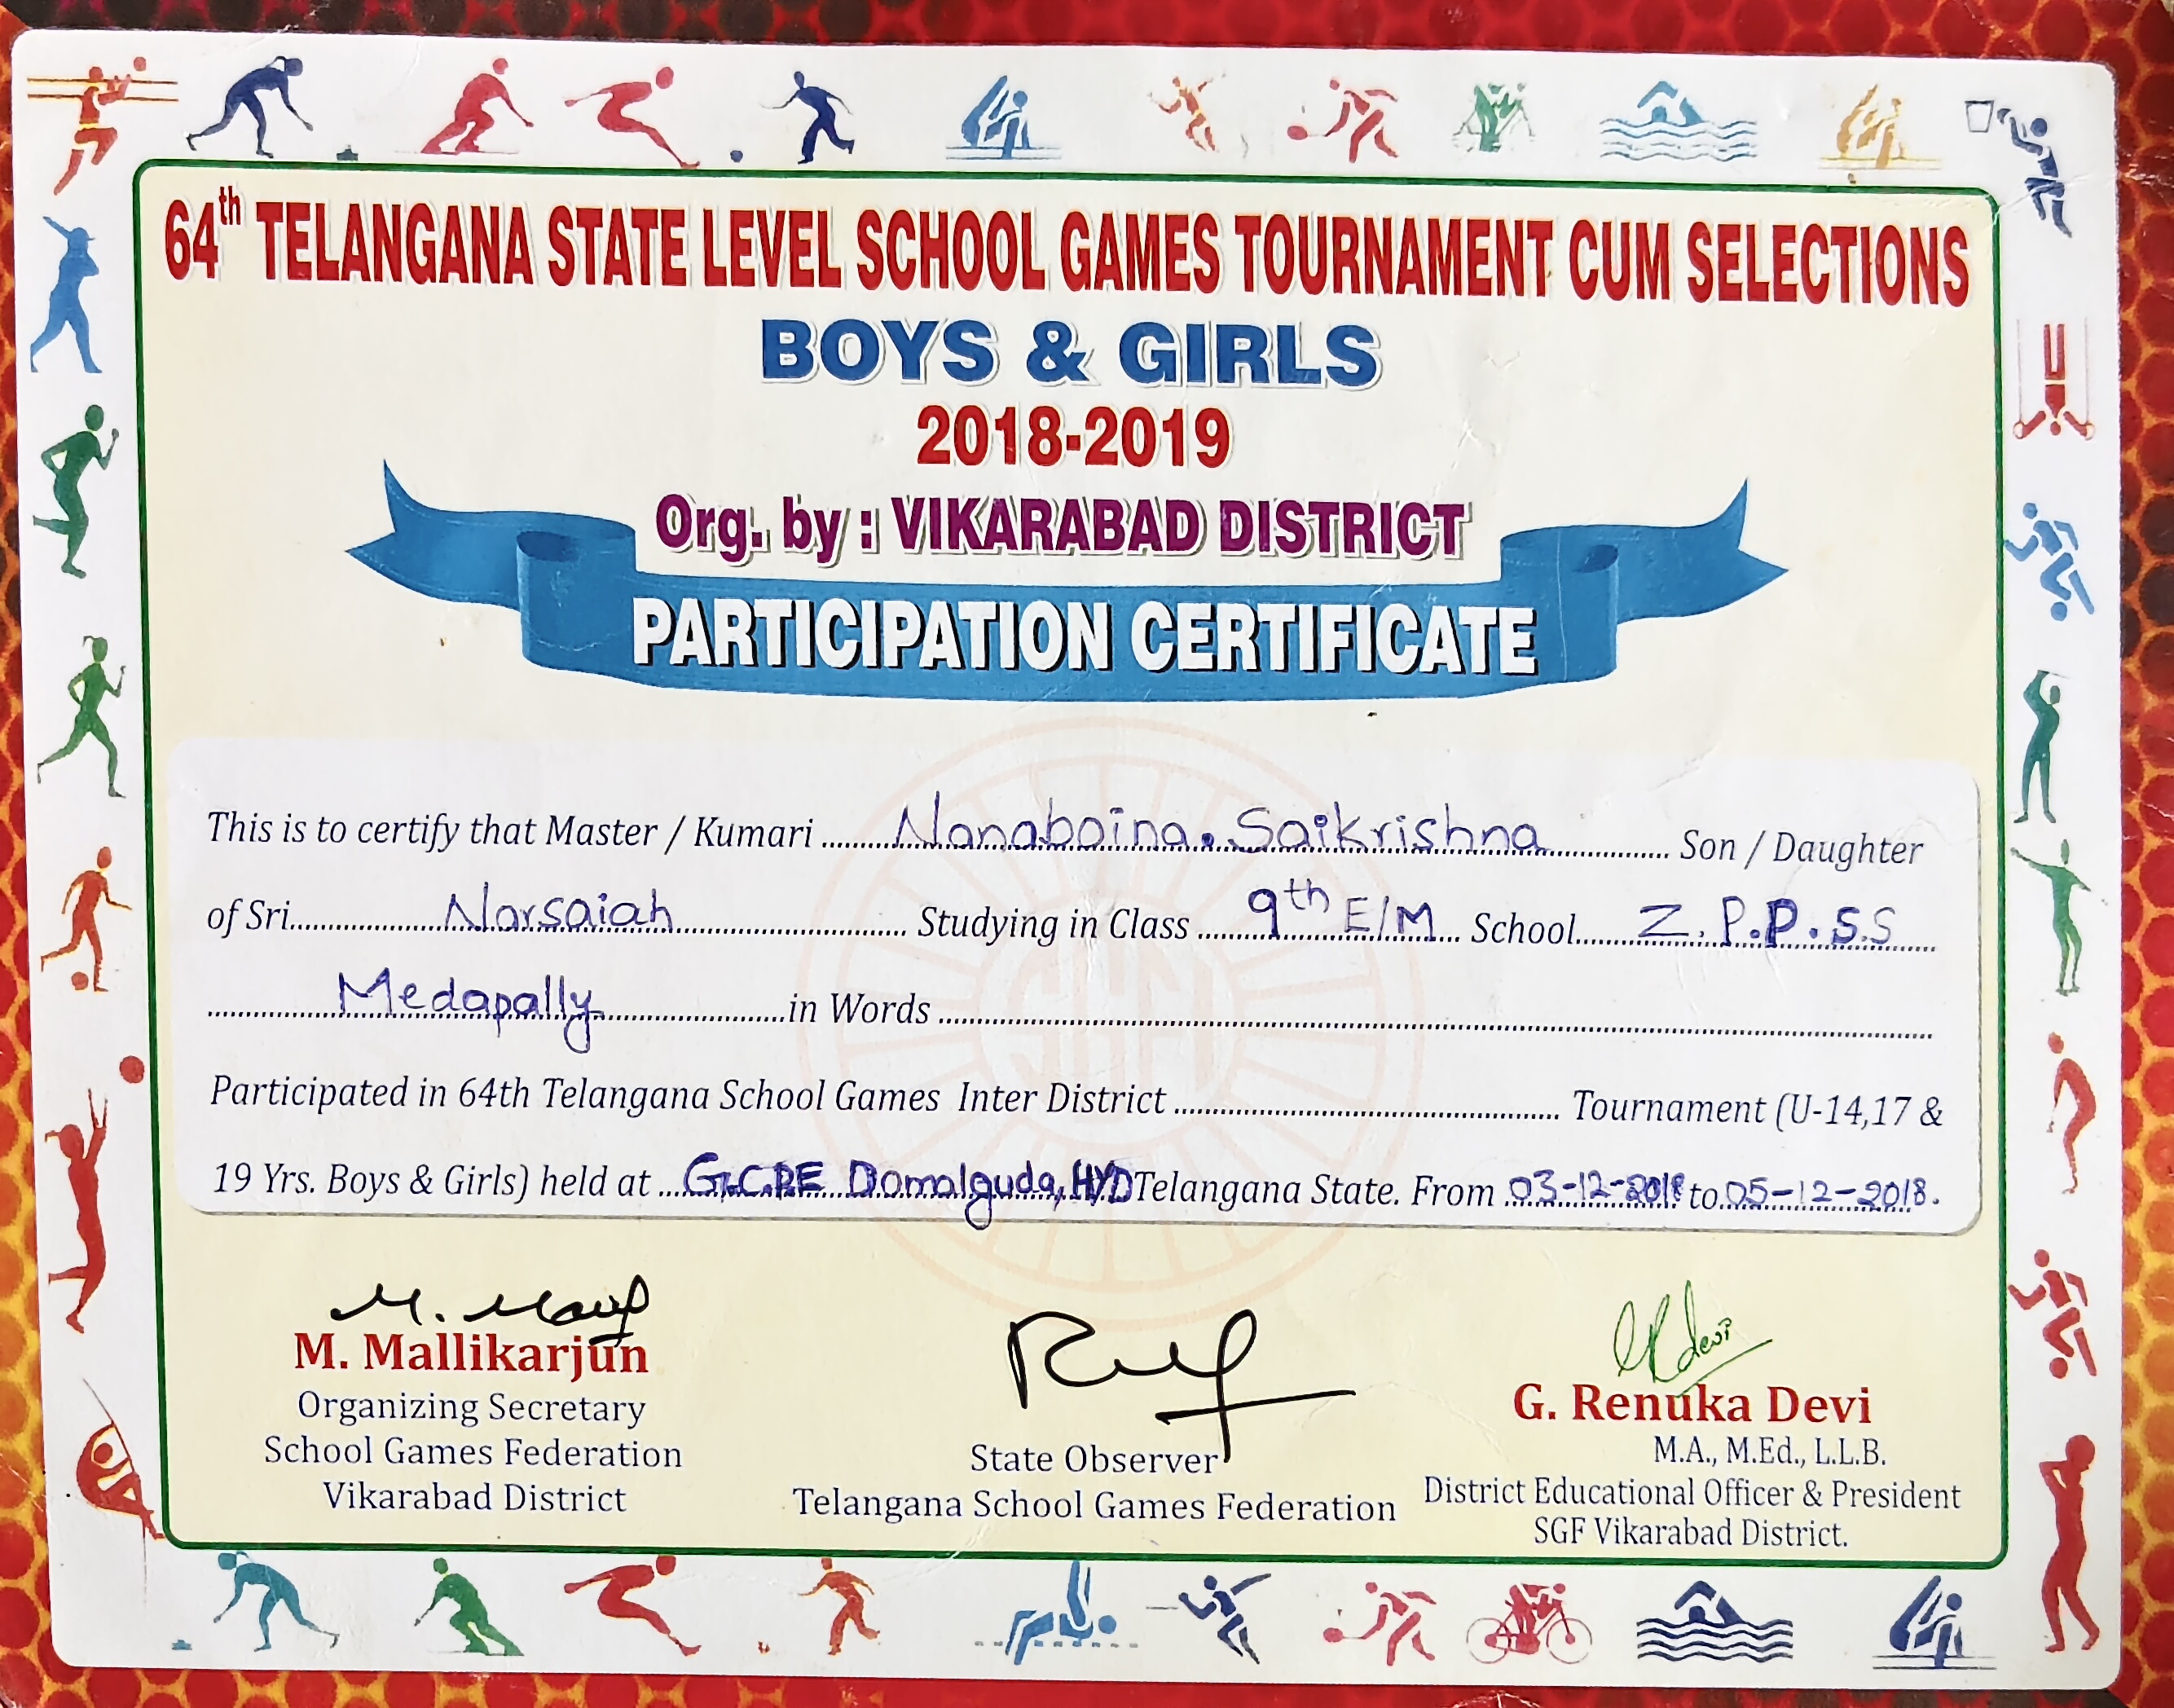 64th TELANGANA STATE LEVEL SCHOOL GAMES TOURNAMENT CUM SELECTIONS
BOYS & GIRLS
2018-2019
Org. by : VIKARABAD DISTRICT
PARTICIPATION CERTIFICATE
This is to certify that Master / Kumari Nanaboina. Saikrishna Son / Daughter
of Sri Narsaiah Studying in Class 9th E/M School Z.P.P.S.S
Medapally in Words
Participated in 64th Telangana School Games Inter District Tournament (U-14,17 &
19 Yrs. Boys & Girls) held at G.C.P.E Domalguda, HYD Telangana State. From 03-12-2018 to 05-12-2018.
M. Mallikarjun
Organizing Secretary
School Games Federation
Vikarabad District
State Observer
Telangana School Games Federation
G. Renuka Devi
M.A., M.Ed., L.L.B.
District Educational Officer & President
SGF Vikarabad District.